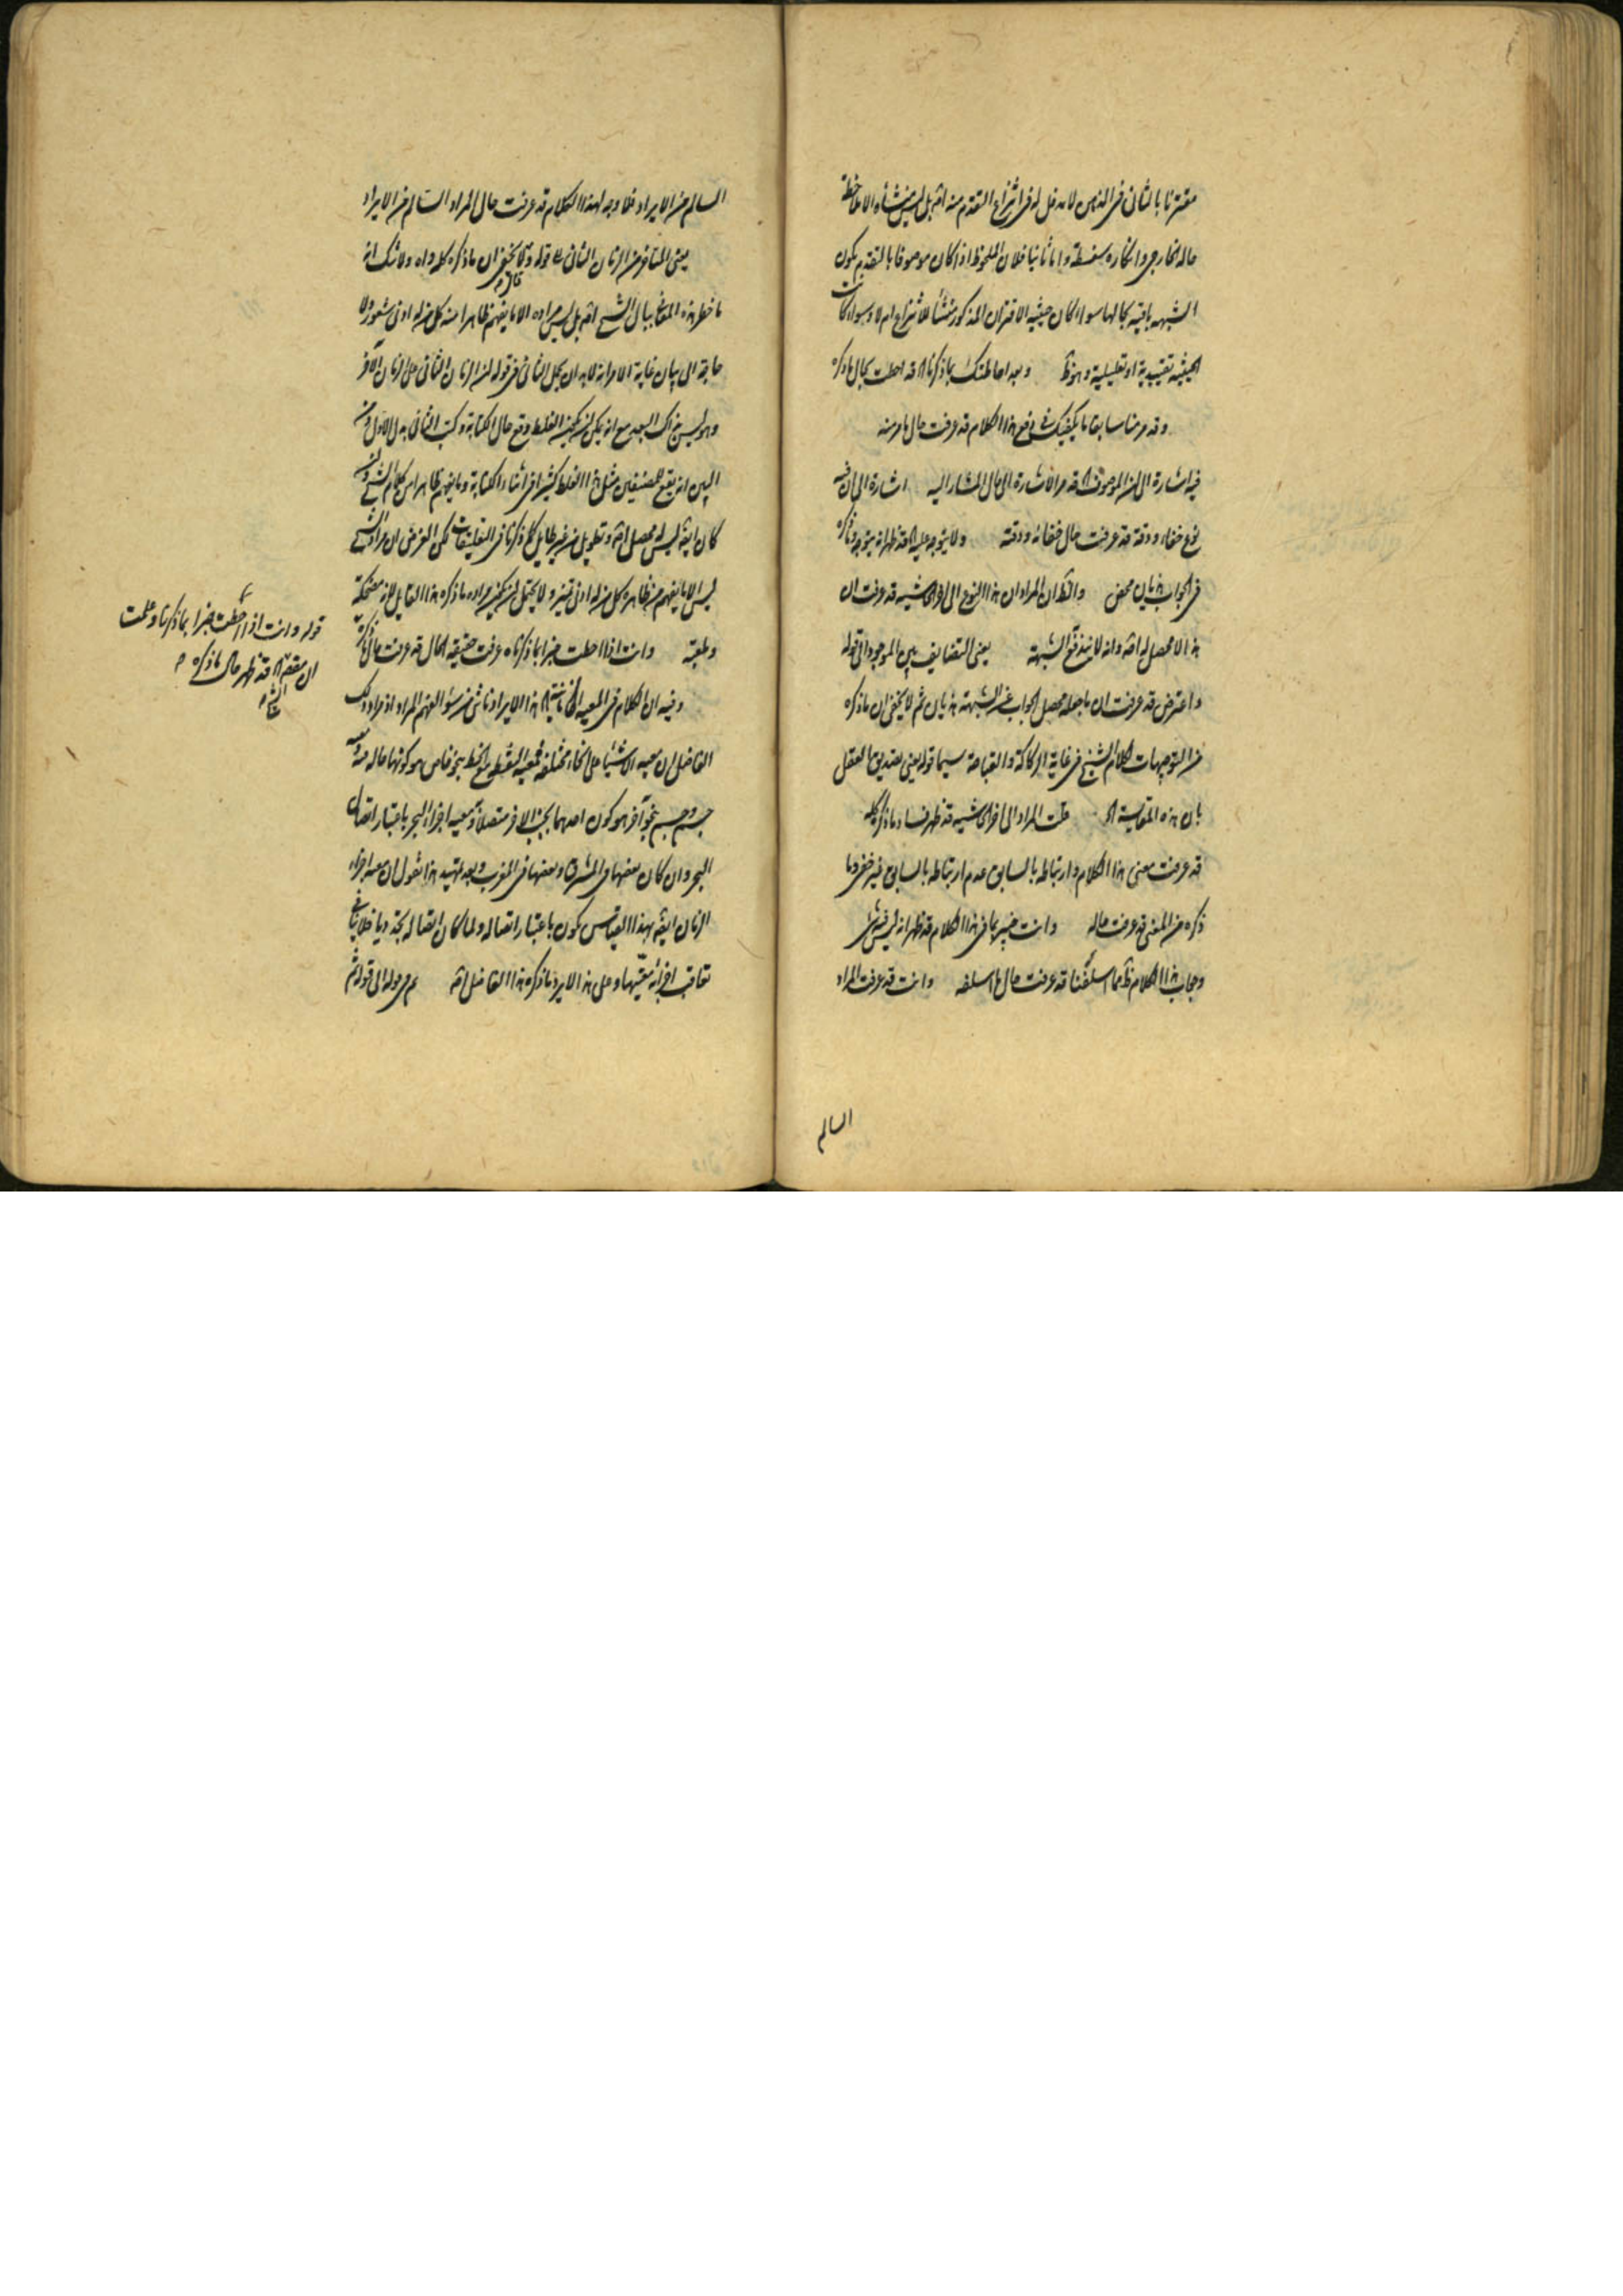 مقترنا بالثانى فى الذهن لا مدخل له فى انتزاع التقدم منه اصلا بل ليس منشأه الا ملاحظة
حاله الخارجى وانكاره سفسطة واما ثانيا فلان الملحوظ اذا كان موصوفا بالتقدم يكون
الشبهه باقية بحالها سواء كان حيثية الاقتران المذكور منشأ للانتزاع ام لا وسواء كانت
الحيثية تقييدية او تعليلية وهو ظ وبعد احاطتك بما ذكرنا اه قد احطت بحال ما ذكره
وقد مر منا سابقا ما يكفيك فى دفع هذا الكلام قد عرفت حال ما مر منه
فيه اشارة الى ان الموصوف اه قد مر الاشارة الى حال المشار اليه اشارة الى ان فيه
نوع خفاء ودقة قد عرفت حال خفائه ودقته ولا يتوجه عليه اه قد ظهر انه يتوجه ما ذكره
فى الجواب هذيان محض والظ ان المراد ان هذا النوع الى اخر الحاشيه قد عرفت ان
هذا لا محصل له اصلا وانه لا يندفع الشبهة يعنى التضايف بين الموجود الى قوله
واعترض قد عرفت ان ما جعله محصل الجواب عن الشبهة هذيان ثم لا يخفى ان ما ذكره
من التوجيهات لكلام الشيخ فى غاية الركاكة والقباحة سيما قوله يعنى بصديق العقل
بان هذه المقايسة اه قلت المراد الى اخر الحاشيه قد ظهر فساد ما ذكره كله
قد عرفت معنى هذا الكلام وارتباطه بالسابق عدم ارتباطه بالسابق غير خفى وما
ذكره من المعنى قد عرفت حاله وانت خبير بما فى هذا الكلام قد ظهر انه ليس فيه شئ
وبجاب هذا الكلام ظ مما اسلفنا قد عرفت حال ما اسلفه وانت قد عرفت المراد
السالم
السالم من الايراد فلا وجه لهذا الكلام قد عرفت حال المراد السالم من الايراد
يعنى المتاخر من الزمان الثانى قوله ولا يخفى ان ما ذكره كله واه ولا شك انه
ما خطر هذه المعانى ببال الشيخ اصلا بل ليس مراده الا ما يفهم ظاهرا منه كل من له ادنى شعور ولا
حاجة الى بيان غاية الامر انه لابد ان يحمل الثانى فى قوله من الزمان الثانى على الزمان الآخر
وهو ليس بذاك البعد مع انه يمكن ان يكون الغلط وقع حال الكتابة وكتب الثانى بدل الاول ومن
البين انه يقع للمصنفين مثل هذا الغلط كثيرا فى اثناء الكتابة وما يفهم ظاهرا من كلام الشيخ وان
كان ايضا ليس له محصل اصلا وتطويل من غير طايل كما ذكرنا فى التعليقات لكن الغرض ان مراد الشيخ
ليس الا ما يفهم من ظاهره كل من له ادنى تميز ولا يحتمل ان يكون مراده ما ذكره هذا القايل لانه مضحكة
وملعبة وانت اذا احطت خبرا بما ذكرناه عرفت حقيقه الحال قد عرفت حال ما ذكره
وفيه ان الكلام فى المعيه الزمانية اه هذا الايراد ناشى من سوء الفهم المراد اذ مراد ذلك
الفاضل ان معيه الاشياء على انحاء مختلفه فمعيه النقطه مع الخط بنحو خاص هو كونها حاله فيه ومعيه
جسم وجسم بنحو آخر هو كون احدهما بجنب الاخر متصلا ومعيه اجزاء البحر باعتبار اتصال
البحر وان كان بعضها فى المشرق وبعضها فى المغرب وبعد تمهيد هذا نقول ان معيه اجزاء
الزمان ايضا بهذا القياس يكون باعتبار اتصاله ولما كان اتصاله تجدديا فلا ينافى
تعاقب اجزائه معيتها وعلى هذا لا يرد ما ذكره هذا الفاضل اصلا ثم فى قوله الى قوله ثم
قوله وانت اذا احطت خبرا بما ذكرنا وعلمت
ان مقصود اه قد ظهر حال ما ذكره